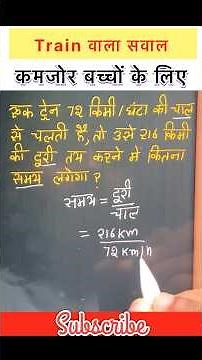 Train वाला सवाल
कमजोर बच्चों के लिए
एक ट्रेन 72 किमी/घंटा की चाल
से चलती है, तो उसे 216 किमी
की दूरी तय करने मे कितना
समय लगेगा?
समय = दूरी
चाल
= 216 km
72 km/h
Subscribe